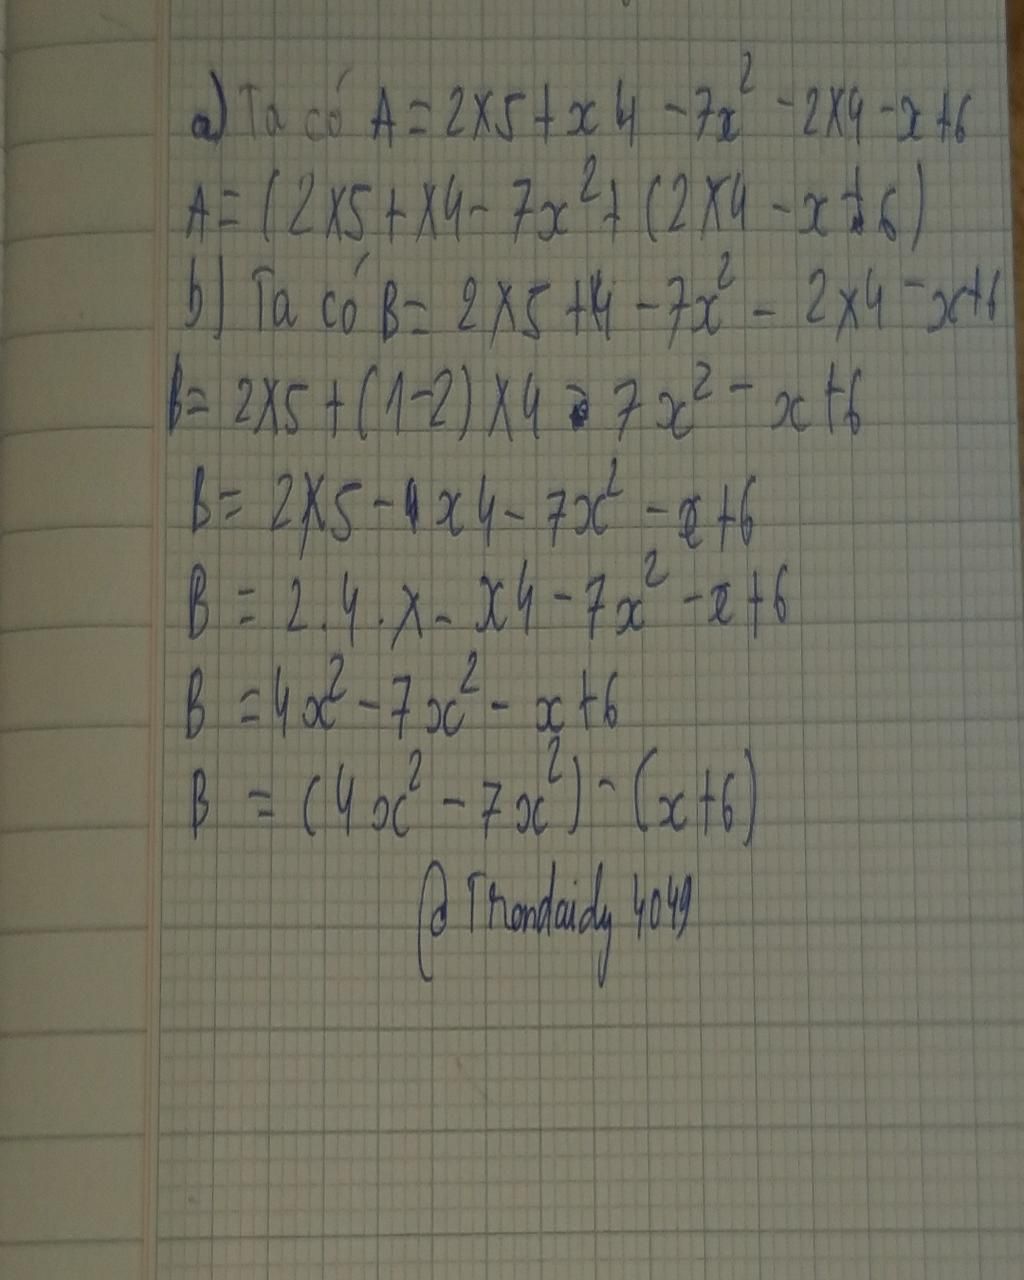 a) Ta có A = 2x5 + x4 - 7x² - 2x4 - x + 6
A = (2x5 + x4 - 7x²) + (2x4 - x + 6)
b) Ta có B = 2x5 + 4 - 7x² - 2x4 - x + 6
B = 2x5 + (1-2)x4 - 7x² - x + 6
B = 2x5 - 1x4 - 7x² - x + 6
B = 2.4.x - x4 - 7x² - x + 6
B = 4x² - 7x² - x + 6
B = (4x² - 7x²) - (x + 6)
4049